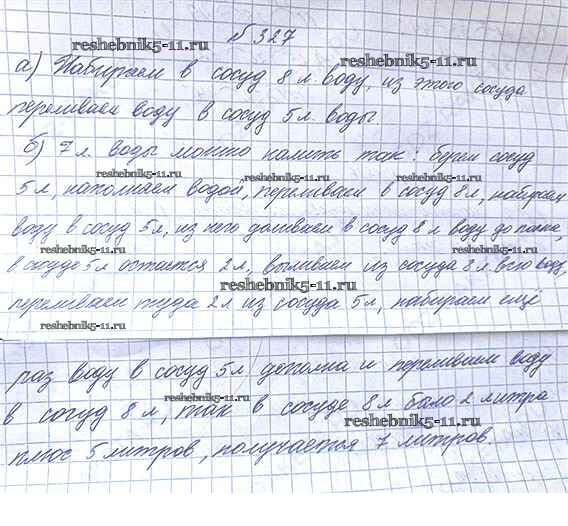 № 327
reshebnik5-11.ru
а) Набираем в сосуд 8 л воду, из этого сосуда
переливаем воду в сосуд 5 л. воды.
reshebnik5-11.ru
б) 7 л. воды можно налить так: берем сосуд
reshebnik5-11.ru reshebnik5-11.ru reshebnik5-11.ru
5 л, наполняем водой, переливаем в сосуд 8 л, набираем
воду в сосуд 5 л, из него доливаем в сосуд 8 л воду до полна,
reshebnik5-11.ru reshebnik5-11.ru
в сосуде 5 л остается 2 л, выливаем из сосуда 8 л всю воду,
reshebnik5-11.ru
переливаем туда 2 л из сосуда 5 л, набираем ещё
reshebnik5-11.ru
раз воду в сосуд 5 л дополна и переливаем воду
reshebnik5-11.ru
в сосуд 8 л, так в сосуде 8 л было 2 литра
reshebnik5-11.ru
плюс 5 литров, получается 7 литров.